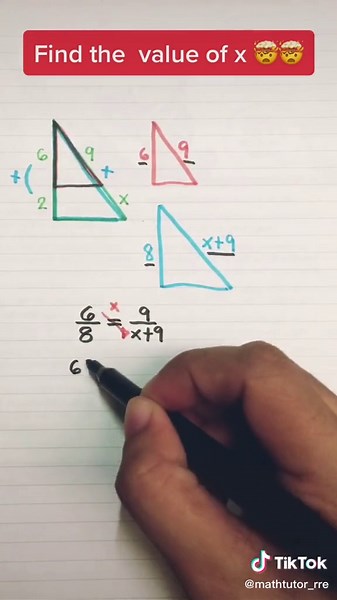 Find the value of x 🤯🤯
6 9 6 9
+( +
2 x
8 x+9
x
6/8 = 9/x+9
6
TikTok
@mathtutor_rre